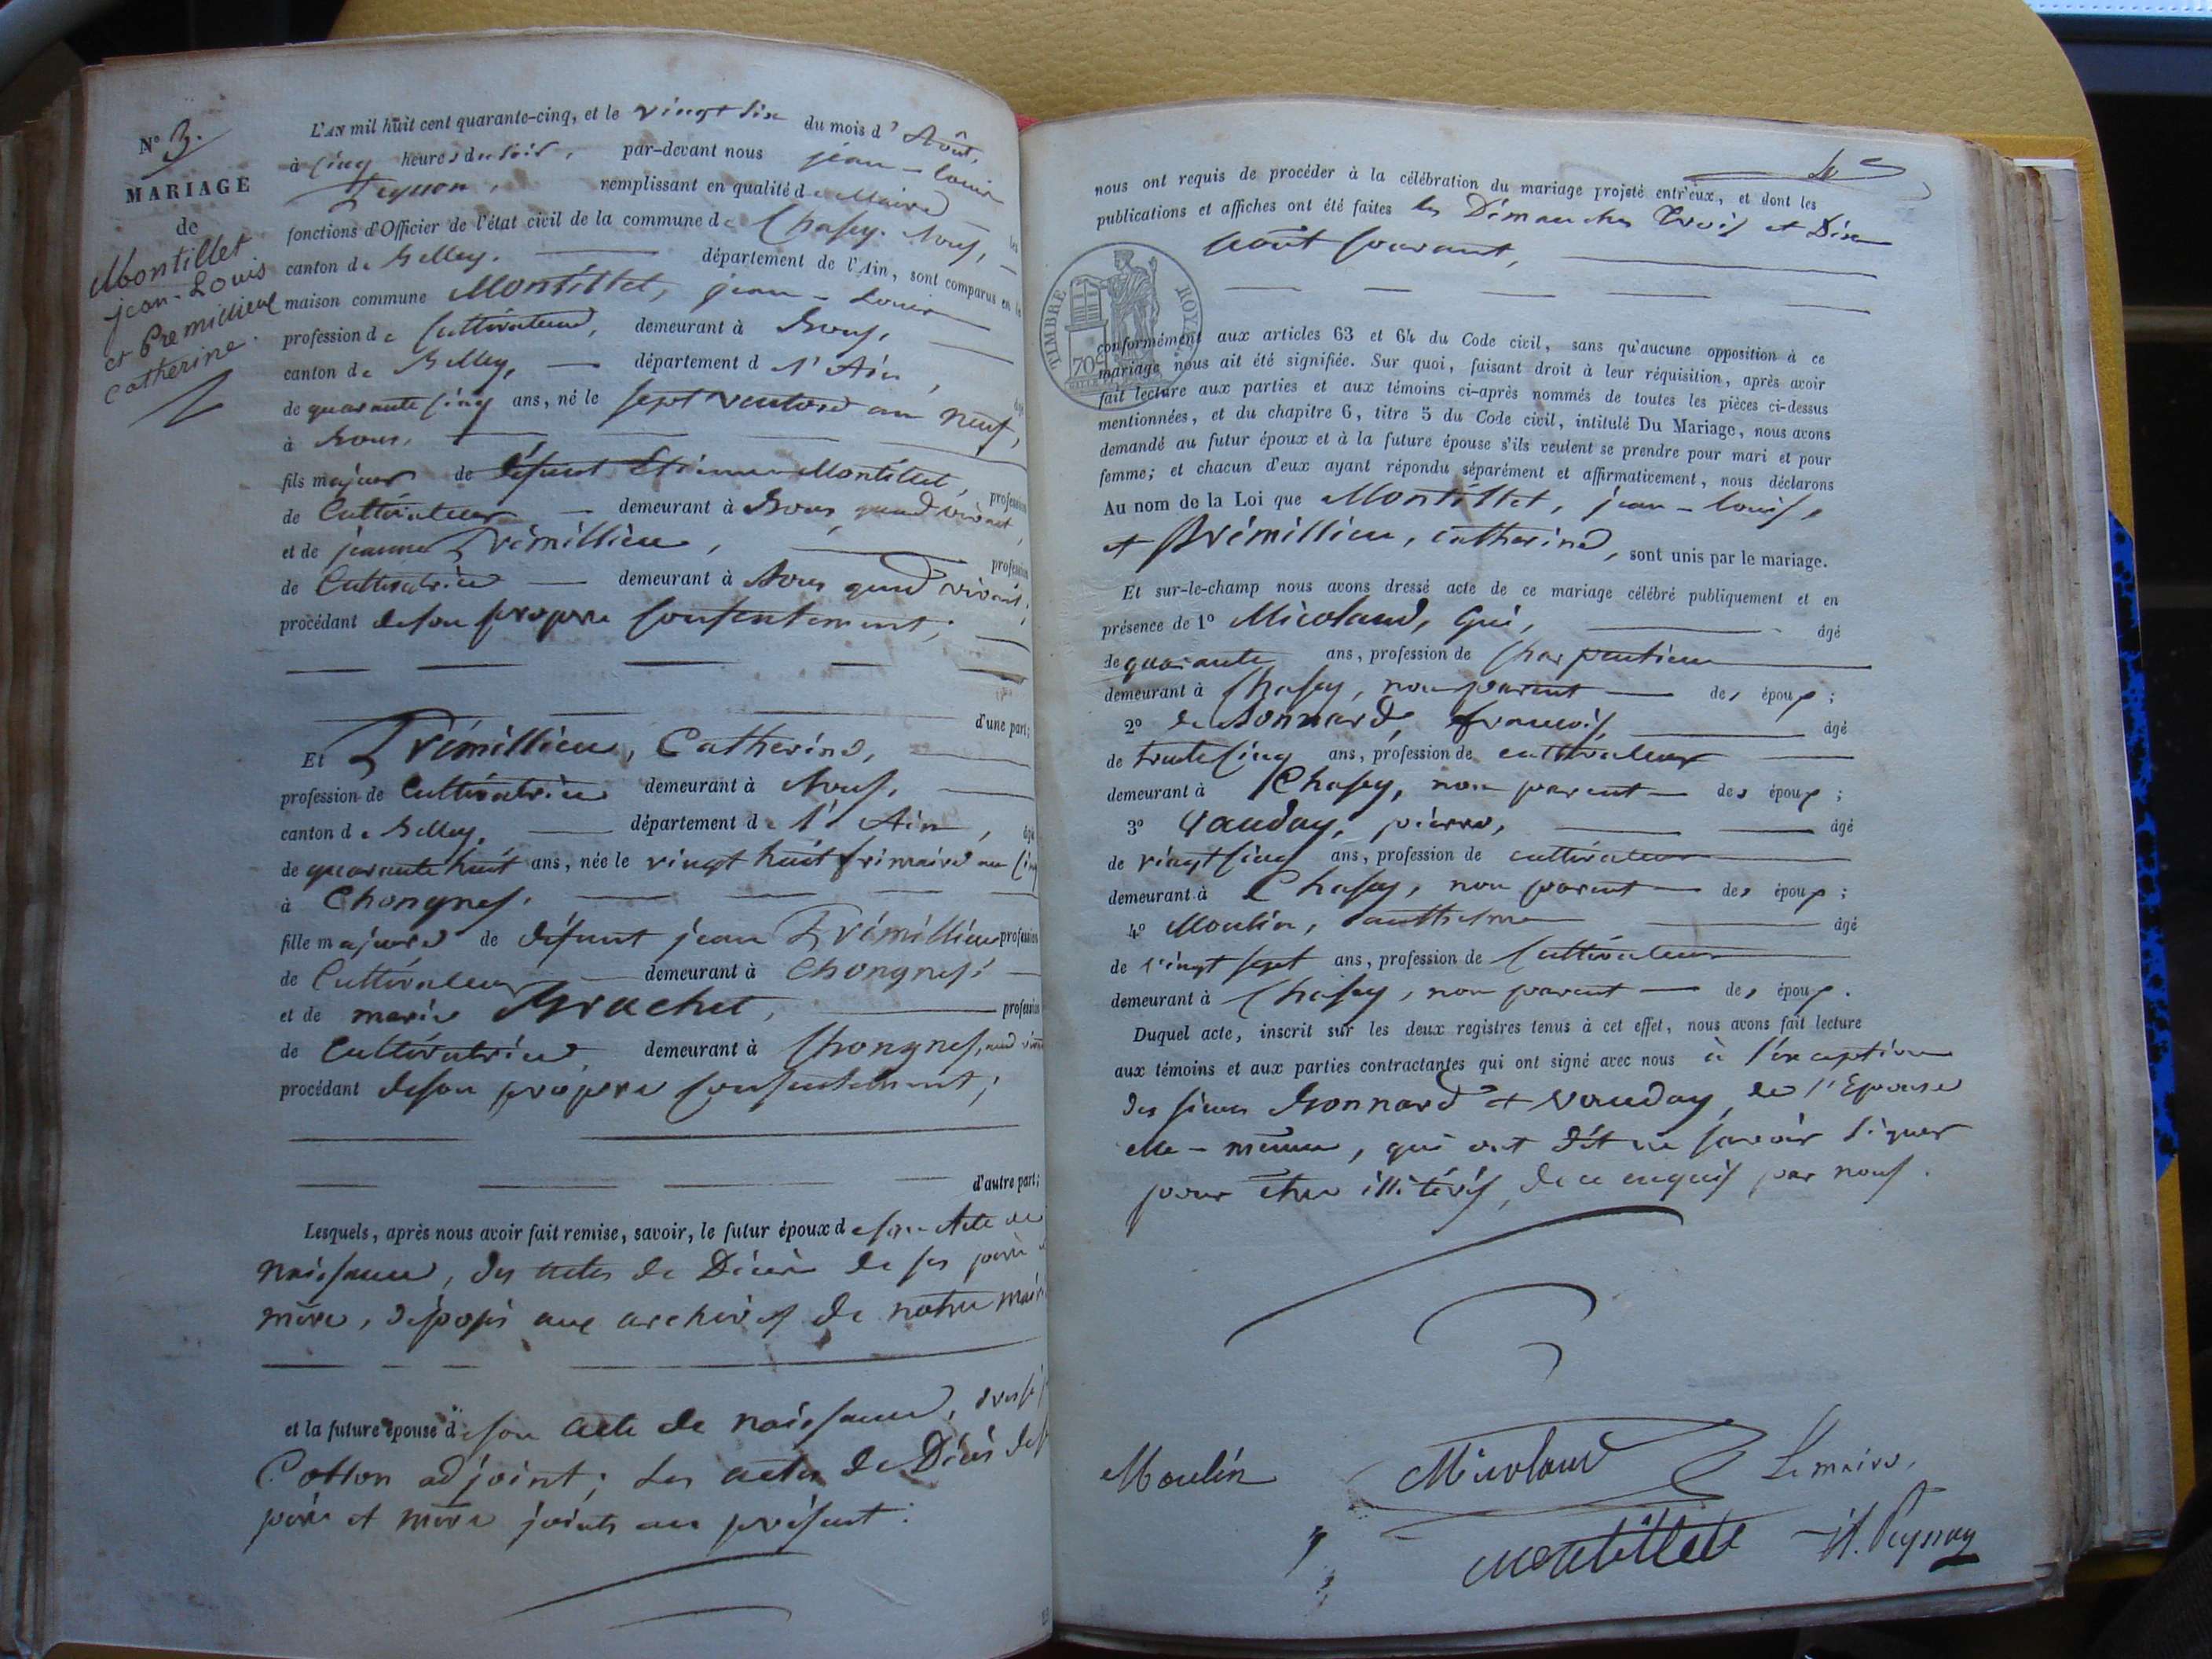 N° 3.
MARIAGE
de
Montillet
jean-Louis
et Premillieu
Catherine.
L'AN mil huit cent quarante-cinq, et le vingt six du mois d'Août,
à cinq heures du soir, par-devant nous jean-louis
Peysson, remplissant en qualité de Maire les
fonctions d'Officier de l'état civil de la commune de Chasey-Bons,
canton de Belley, département de l'Ain, sont comparus en la
maison commune Montillet, jean-Louis
profession de Cultivateur, demeurant à Bons,
canton de Belley, département d l'Ain, âgé
de quarante cinq ans, né le sept ventose an neuf,
à Bons,
fils majeur de défunt Etienne Montillet, profession
de Cultivateur demeurant à Bons quand vivait,
et de jeanne Prémillieu, profession
de Cultivatrice demeurant à Bons quand vivait,
procédant de son propre consentement;
d'une part;
Et Prémillieu, Catherine,
profession de Cultivatrice demeurant à Bons,
canton de Belley, département de l'Ain, âgé
de quarante huit ans, née le vingt huit frimaire an cinq
à Chongnes,
fille majeure de défunt jean Prémillieu profession
de Cultivateur demeurant à Chongnes,
et de marie Brachet, profession
de Cultivatrice, demeurant à Chongnes,
procédant de son propre consentement;
d'autre part;
Lesquels, après nous avoir fait remise, savoir, le futur époux de son Acte de
naissance, des actes de Décès de ses père et
mère, déposés aux archives de notre mairie
et la future épouse de son acte de naissance, dressé
Cotton adjoint; des actes de Décès de ses
père et mère joints au présent.
nous ont requis de procéder à la célébration du mariage projeté entr'eux, et dont les
publications et affiches ont été faites les Dimanches Trois et Dix
août courant,
TIMBRE ROYAL
70c
conformément aux articles 63 et 64 du Code civil, sans qu'aucune opposition à ce
mariage nous ait été signifiée. Sur quoi, faisant droit à leur réquisition, après avoir
fait lecture aux parties et aux témoins ci-après nommés de toutes les pièces ci-dessus
mentionnées, et du chapitre 6, titre 5 du Code civil, intitulé Du Mariage, nous avons
demandé au futur époux et à la future épouse s'ils veulent se prendre pour mari et pour
femme; et chacun d'eux ayant répondu séparément et affirmativement, nous déclarons
Au nom de la Loi que Montillet, jean-louis,
et Prémillieu, catherine, sont unis par le mariage.
Et sur-le-champ nous avons dressé acte de ce mariage célébré publiquement et en
présence de 1° Micoland, Gui, âgé
de quarante ans, profession de Charpentier
demeurant à Chasey, non parent des époux;
2° de Bonnard, francois, âgé
de trente cinq ans, profession de cultivateur
demeurant à Chasey, non parent des époux;
3° Vauday, pierre, âgé
de vingt cinq ans, profession de cultivateur
demeurant à Chasey, non parent des époux;
4° Moulin, anthelme âgé
de vingt sept ans, profession de Cultivateur
demeurant à Chasey, non parent des époux.
Duquel acte, inscrit sur les deux registres tenus à cet effet, nous avons fait lecture
aux témoins et aux parties contractantes qui ont signé avec nous à l'exception
des sieurs Bonnard et Vauday, de l'Epouse
elle-même, qui ont dit ne savoir signer
pour être illitérés, de ce enquis par nous.
Moulin Micoland Le maire,
montillet